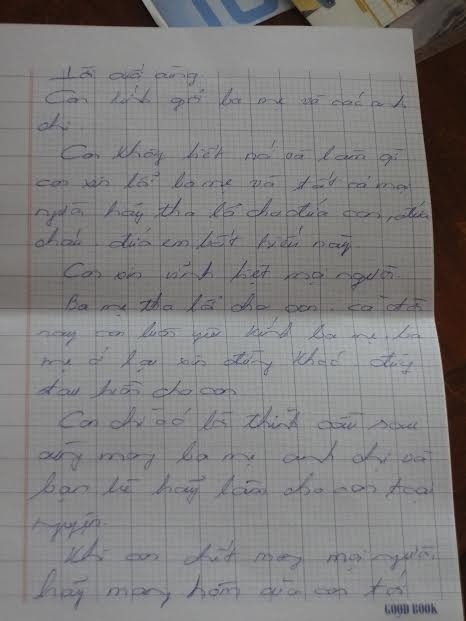 Lời cuối cùng
Con kính gởi ba mẹ và các anh
chị.
Con không biết nói và làm gì
con xin lỗi ba mẹ và tất cả mọi
người hãy tha lỗi cho đứa con, đứa
cháu. đứa em bất hiếu này
Con xin vĩnh biệt mọi người.
Ba mẹ tha lỗi cho con. cả đời
này con luôn yêu kính ba mẹ. ba
mẹ ở lại xin đừng khóc đừng
đau buồn cho con
Con chỉ có lời thỉnh cầu sau
cùng mong ba mẹ anh chị và
bạn bè hãy làm cho con toại
nguyện.
Khi con chết mong mọi người
hãy mang hòm của con tới
GOOD BOOK